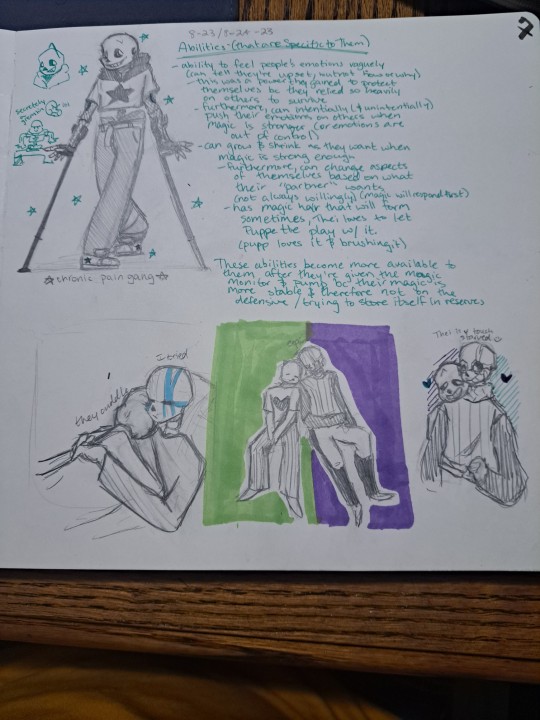 8-23/8-24-23
Abilities-(that are specific to Them)
- ability to feel people's emotions vaguely
(can tell they're upset, but not how or why)
- this was a power they gained to protect
themselves bc they relied so heavily
on others to survive
- furthermore, can intentially (& unintentially)
push their emotions on others when
magic is stronger (or emotions are
out of control)
- can grow & shrink as they want when
magic is strong enough
- furthermore, can change aspects
of themselves based on what
their "partner" wants
(not always willingly) (magic will respond first)
- has magic hair that will form
sometimes, Thei loves to let
Puppe the play w/ it
(pupp loves it & brushing it)
These abilities become more available to
them after they're given the magic
monitor & pump bc their magic is
more stable & therefore not on the
defensive / trying to store itself in reserves
secretely
☆chronic pain gang☆
I tried
they cuddle
Thei is touch
starved